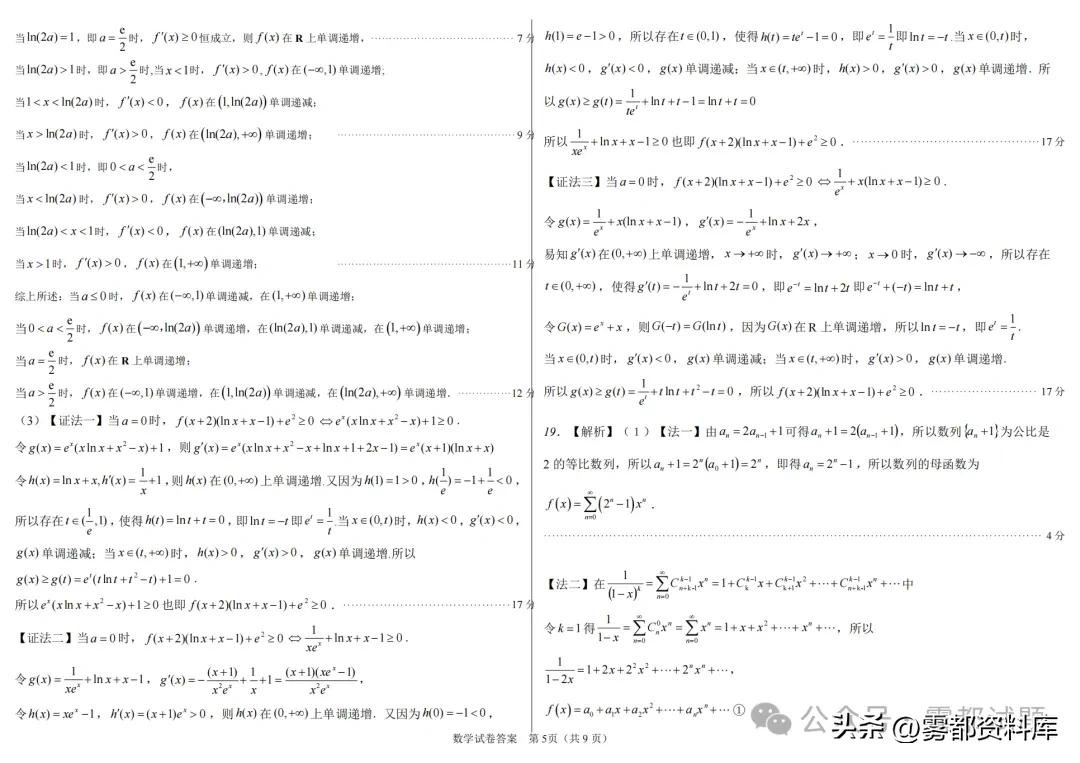 当ln(2a)=1，即a=e/2时，f′(x)≥0恒成立，则f(x)在 R 上单调递增，……7 分
当ln(2a)>1时，即a>e/2时,当x<1时，f′(x)>0, f(x)在(-∞,1)单调递增;
当1<x<ln(2a)时，f′(x)<0，f(x)在(1,ln(2a))单调递减；
当x>ln(2a)时，f′(x)>0，f(x)在(ln(2a),+∞)单调递增；……9 分
当ln(2a)<1时，即0<a<e/2时，
当x<ln(2a)时，f′(x)>0，f(x)在(-∞,ln(2a))单调递增；
当ln(2a)<x<1时，f′(x)<0，f(x)在(ln(2a),1)单调递减；
当x>1时，f′(x)>0，f(x)在(1,+∞)单调递增；……11 分
综上所述：当a≤0时，f(x)在(-∞,1)单调递减，在(1,+∞)单调递增；
当0<a<e/2时，f(x)在(-∞,ln(2a))单调递增，在(ln(2a),1)单调递减，在(1,+∞)单调递增；
当a=e/2时，f(x)在 R 上单调递增；
当a>e/2时，f(x)在(-∞,1)单调递增，在(1,ln(2a))单调递减，在(ln(2a),+∞)单调递增．……12 分
（3）【证法一】当a=0时，f(x+2)(ln x+x-1)+e²≥0 ⇔ eˣ(x ln x+x²-x)+1≥0．
令g(x)=eˣ(x ln x+x²-x)+1，则g′(x)=eˣ(x ln x+x²-x+ln x+1+2x-1)=eˣ(x+1)(ln x+x)
令h(x)=ln x+x,h′(x)=1/x+1,则h(x)在(0,+∞)上单调递增.又因为h(1)=1>0,h(1/e)=-1+1/e<0，
所以存在t∈(1/e,1)，使得h(t)=ln t+t=0,即ln t=-t即eᵗ=1/t.当x∈(0,t)时，h(x)<0，g′(x)<0，
g(x)单调递减；当x∈(t,+∞)时，h(x)>0，g′(x)>0，g(x)单调递增.所以
g(x)≥g(t)=eᵗ(t ln t+t²-t)+1=0．
所以eˣ(x ln x+x²-x)+1≥0也即f(x+2)(ln x+x-1)+e²≥0．……17 分
【证法二】当a=0时，f(x+2)(ln x+x-1)+e²≥0 ⇔ 1/(xeˣ)+ln x+x-1≥0．
令g(x)=1/(xeˣ)+ln x+x-1，g′(x)=-(x+1)/(x²eˣ)+1/x+1=(x+1)(xeˣ-1)/(x²eˣ)，
令h(x)=xeˣ-1，h′(x)=(x+1)eˣ>0，则h(x)在(0,+∞)上单调递增．又因为h(0)=-1<0，
h(1)=e-1>0，所以存在t∈(0,1)，使得h(t)=teᵗ-1=0，即eᵗ=1/t即ln t=-t.当x∈(0,t)时，
h(x)<0，g′(x)<0，g(x)单调递减；当x∈(t,+∞)时，h(x)>0，g′(x)>0，g(x)单调递增．所
以g(x)≥g(t)=1/(teᵗ)+ln t+t-1=ln t+t=0
所以1/(xeˣ)+ln x+x-1≥0也即f(x+2)(ln x+x-1)+e²≥0．……17 分
【证法三】当a=0时，f(x+2)(ln x+x-1)+e²≥0 ⇔ 1/eˣ+x(ln x+x-1)≥0．
令g(x)=1/eˣ+x(ln x+x-1)，g′(x)=-1/eˣ+ln x+2x，
易知g′(x)在(0,+∞)上单调递增，x→+∞时，g′(x)→+∞；x→0时，g′(x)→-∞，所以存在
t∈(0,+∞)，使得g′(t)=-1/eᵗ+ln t+2t=0，即e⁻ᵗ=ln t+2t即e⁻ᵗ+(-t)=ln t+t，
令G(x)=eˣ+x，则G(-t)=G(ln t)，因为G(x)在R上单调递增，所以ln t=-t，即eᵗ=1/t．
当x∈(0,t)时，g′(x)<0，g(x)单调递减；当x∈(t,+∞)时，g′(x)>0，g(x)单调递增．
所以g(x)≥g(t)=1/eᵗ+t ln t+t²-t=0，所以f(x+2)(ln x+x-1)+e²≥0．……17 分
19．【解析】（1）【法一】由aₙ=2aₙ₋₁+1可得aₙ+1=2(aₙ₋₁+1)，所以数列{aₙ+1}为公比是
2 的等比数列，所以aₙ+1=2ⁿ(a₀+1)=2ⁿ，即得aₙ=2ⁿ-1，所以数列的母函数为
f(x)=∑_{n=0}^{∞}(2ⁿ-1)xⁿ．
……4 分
【法二】在1/(1-x)^k=∑_{n=0}^{∞}C_{n+k-1}^{k-1}xⁿ=1+C_{k}^{k-1}x+C_{k+1}^{k-1}x²+⋯+C_{n+k-1}^{k-1}xⁿ+⋯中
令k=1得1/(1-x)=∑_{n=0}^{∞}C_{n}^{0}xⁿ=∑_{n=0}^{∞}xⁿ=1+x+x²+⋯+xⁿ+⋯，所以
1/(1-2x)=1+2x+2²x²+⋯+2ⁿxⁿ+⋯，
f(x)=a₀+a₁x+a₂x²+⋯+aₙxⁿ+⋯ ①
数学试卷答案 第 5页（共 9 页）
头条 @雾都资料库